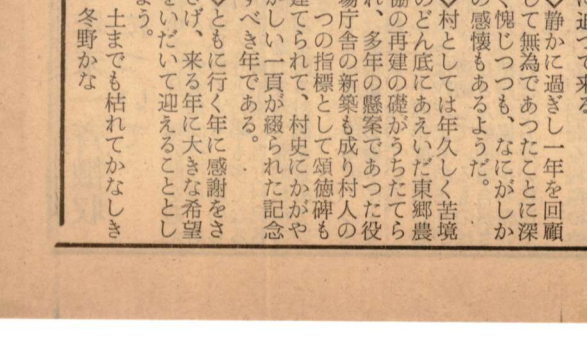 に迫って来
◇静かに過ぎし一年を回顧
して無為であつたことに深
く愧じつつも、なにがしか
の感懐もあるようだ。
◇村としては年久しく苦境
のどん底にあえいだ東郷農
協の再建の礎がうちたてら
れ、多年の懸案であつた役
場庁舎の新築も成り村人の
一つの指標として頌徳碑も
建てられて、村史にかがや
かしい一頁が綴られた記念
すべき年である。
◇ともに行く年に感謝をさ
さげ、来る年に大きな希望
をいだいて迎えることとし
よう。
土までも枯れてかなしき
冬野かな